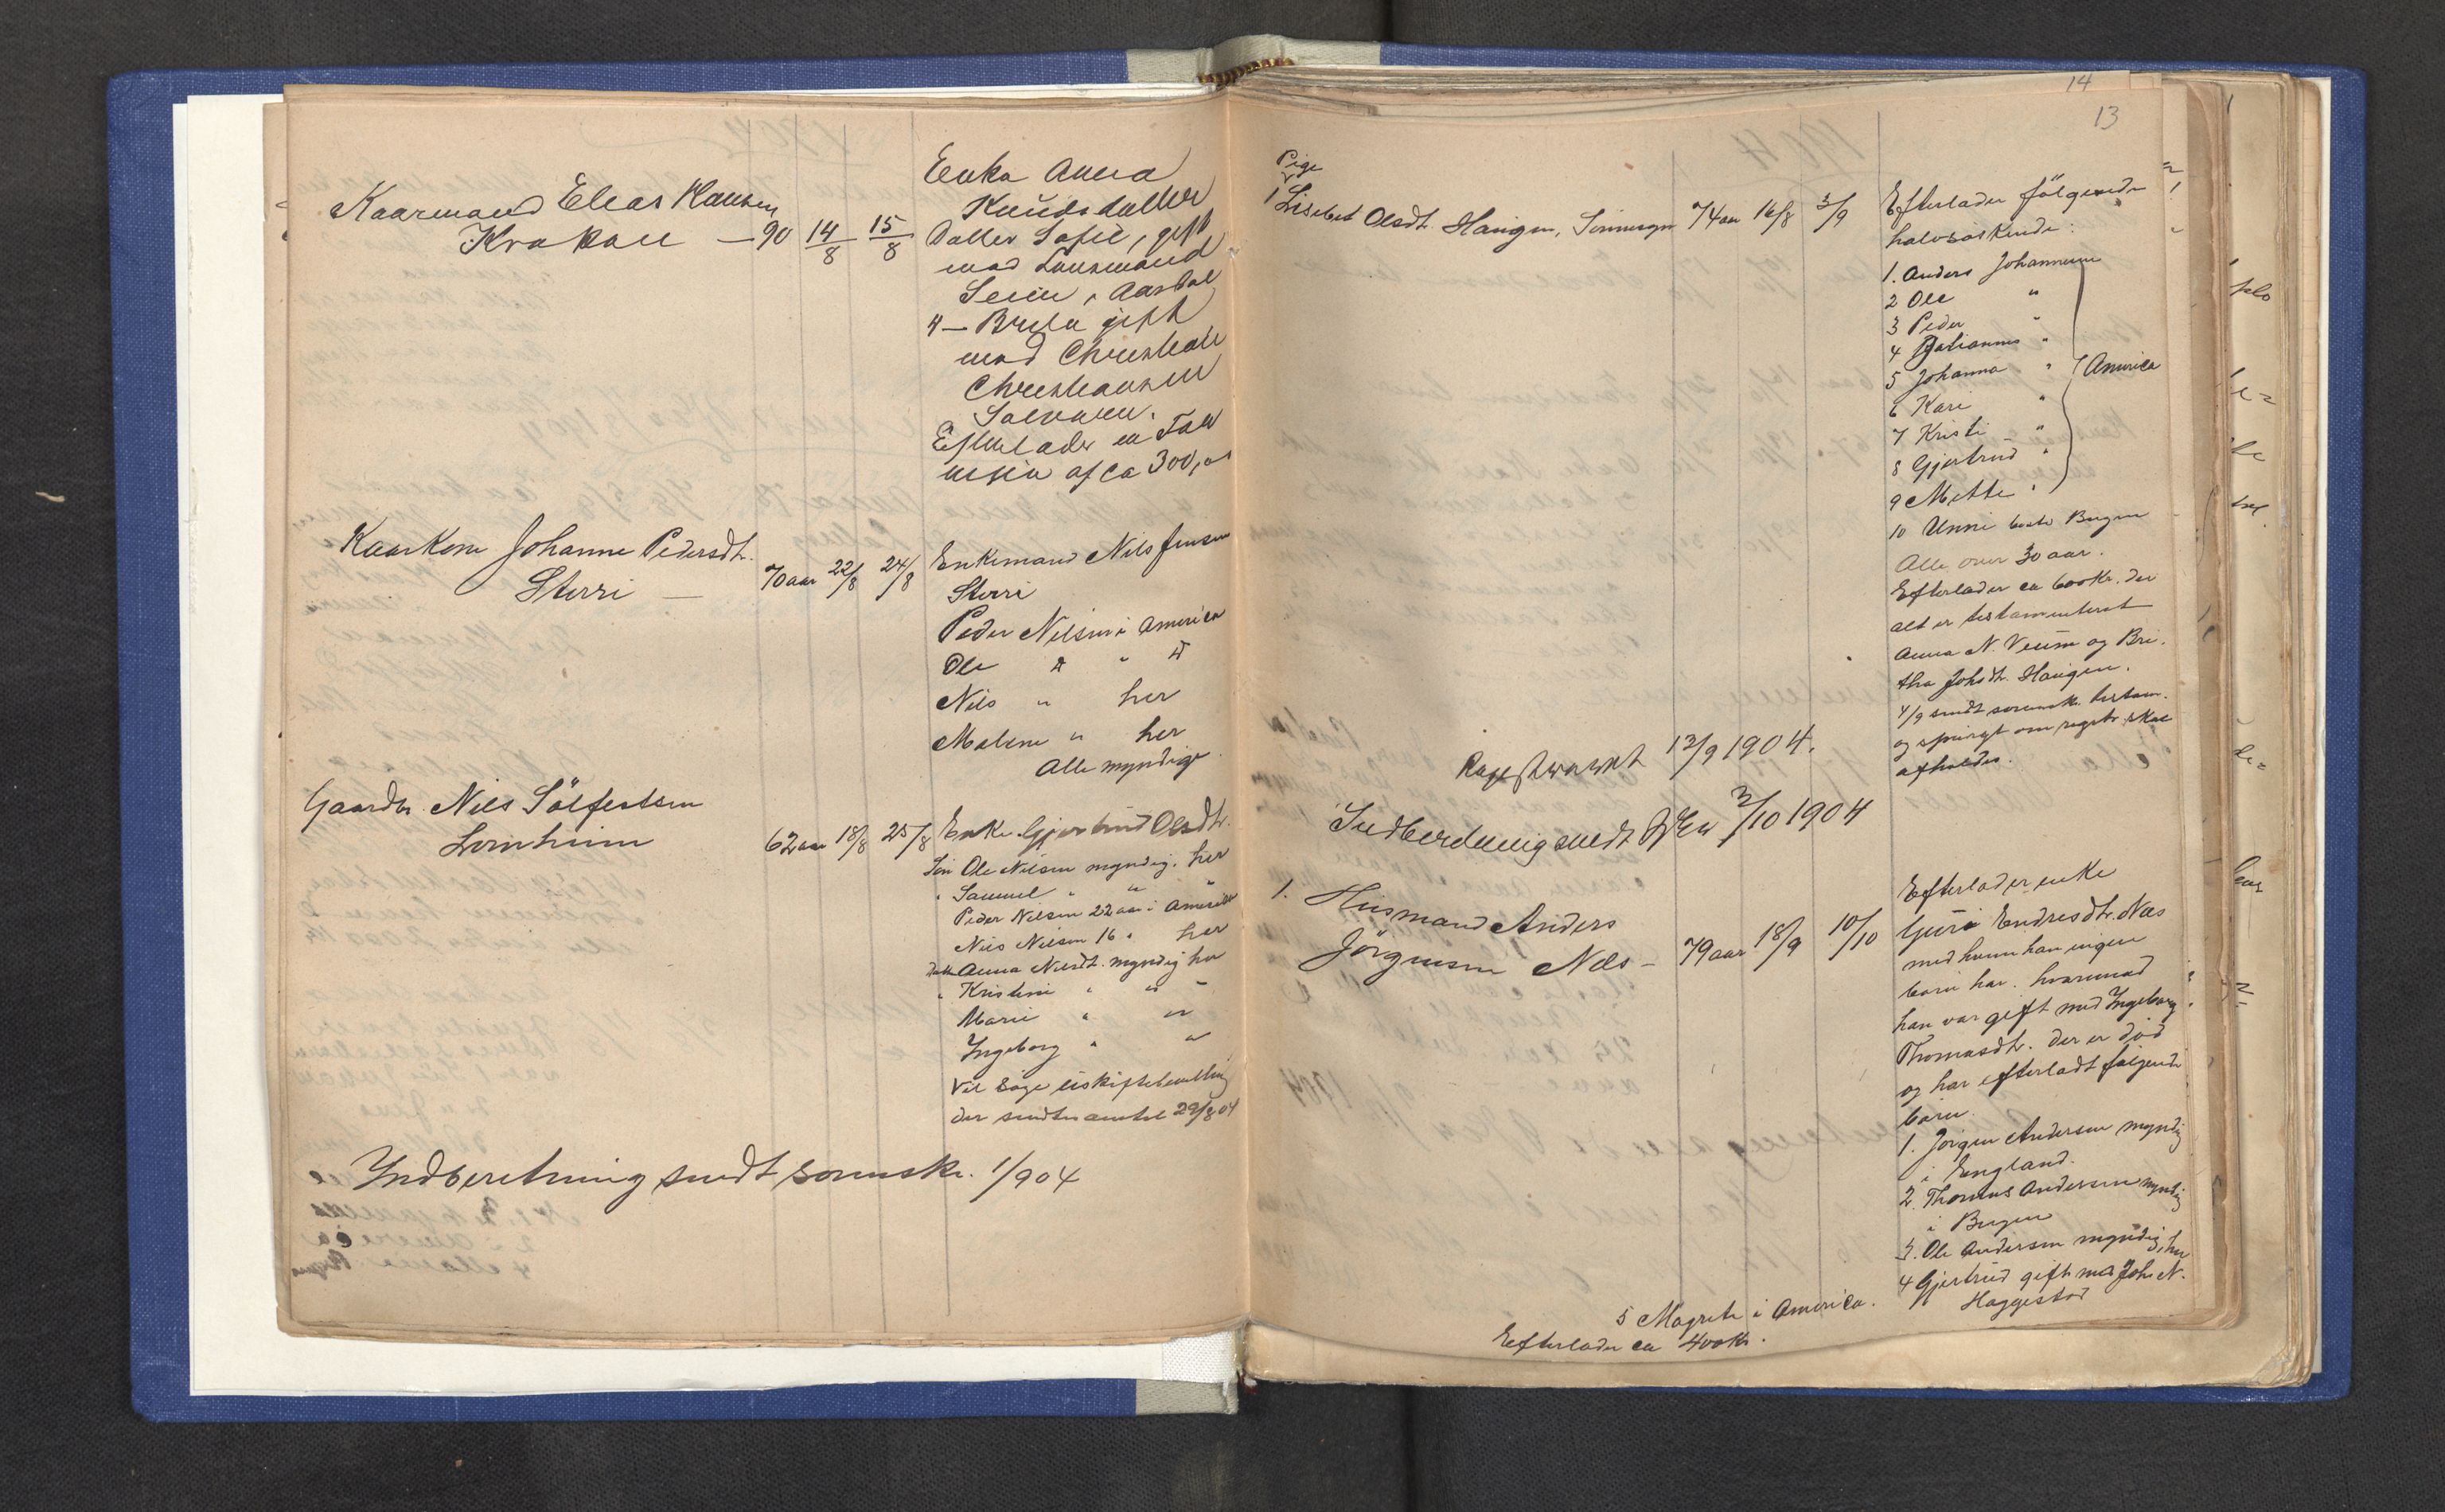 Kaarmand Elias Hansen
Krakau — 90 14/8 15/8
Enka Anna
Knudsdatter
Datter Sofie, gift
med Lensmand
Seim, Aardal
4 — Brita gift
med Christian
Christiansen
Efterlader en For
af ca 300,00
Kaarkone Johanne Pedersdtr.
Sterri — 70 aar 22/8 24/8
Enkemand Nils Jensen
Sterri
Peder Nilsen i America
Ole " " "
Nils " her
Malene " her
Alle myndige.
Gaardbr. Nils Sölfestsen
Lereim 62 aar 18/8 25/8
Enke Gjertrud Olsdtr.
Sön Ole Nilsen myndig. her
" Samuel " " "
Peder Nilsen 22 aar i Amerika
Nils Nilsen 16 " her
Datt. Anna Nilsdt. myndig her
" Kristine " " "
Marie " "
Ingeborg " "
Vil söge uskiftebevilling
der sendtes amtet 29/8 04
Indberetning sendt sorensk. 1/9 04
14
13
Pige
1 Lisebet Olsdt. Haugen, Sönneregn 74 aar 16/8 3/9
Efterlader fölgende
halvsöskende:
1. Anders Johannesen
2 Ole "
3 Peder "
4 Johannes "
5 Johanna " America
6 Kari "
7 Kristi "
8 Gjertrud "
9 Mette "
10 Unni Bergen
Alle over 30 aar.
Efterlader ca 600 Kr. der
alt er testamenteret
Anna N. Veum og Bri-
tha Johsdtr. Haugen.
4/9 sendt sorensk. testam.
og spurgt om registr. skal
afholdes.
Registreret 13/9 1904.
Indberetning sendt 3/10 1904
1. Husmand Anders
Jörgensen Næs — 79 aar 18/9 10/10
Efterlader enke
Guri Endresdtr. Næs
med hvem han ingen
börn har. hvormed
han var gift med Ingeborg
Thomasdtr. der er död
og har efterladt fölgende
börn.
1. Jörgen Andersen myndig
i England.
2. Thomas Andersen myndig
i Bergen
3. Ole Andersen myndig, her
4 Gjertrud gift med Joh. N.
Haggestad
5 Magrete i America.
Efterlader ca 400 Kr.